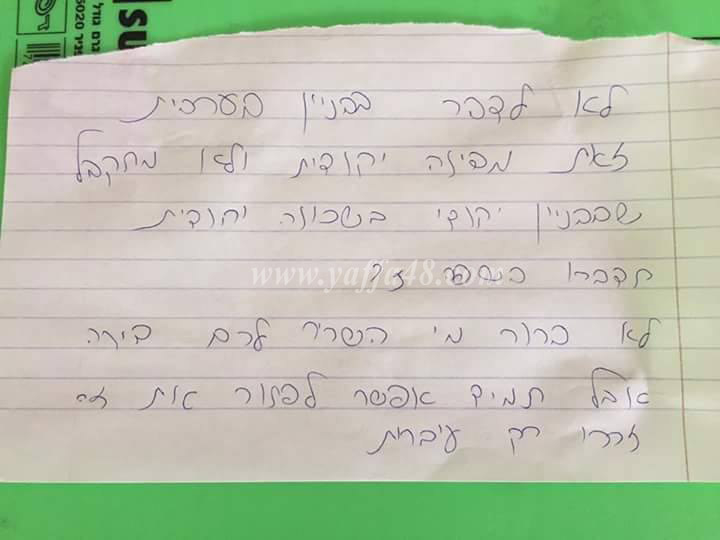 su
5020
לא לדבר בבניין בערבית
זאת מדינה יהודית ולא מתקבל
שבבניין יהודי בשכונה יהודית
תדברו בשפה זו
www.yaffa48.com
לא ברור מי השכיר לכם דירה
אבל תמיד אפשר לפתור את זה
דברו רק עיברית